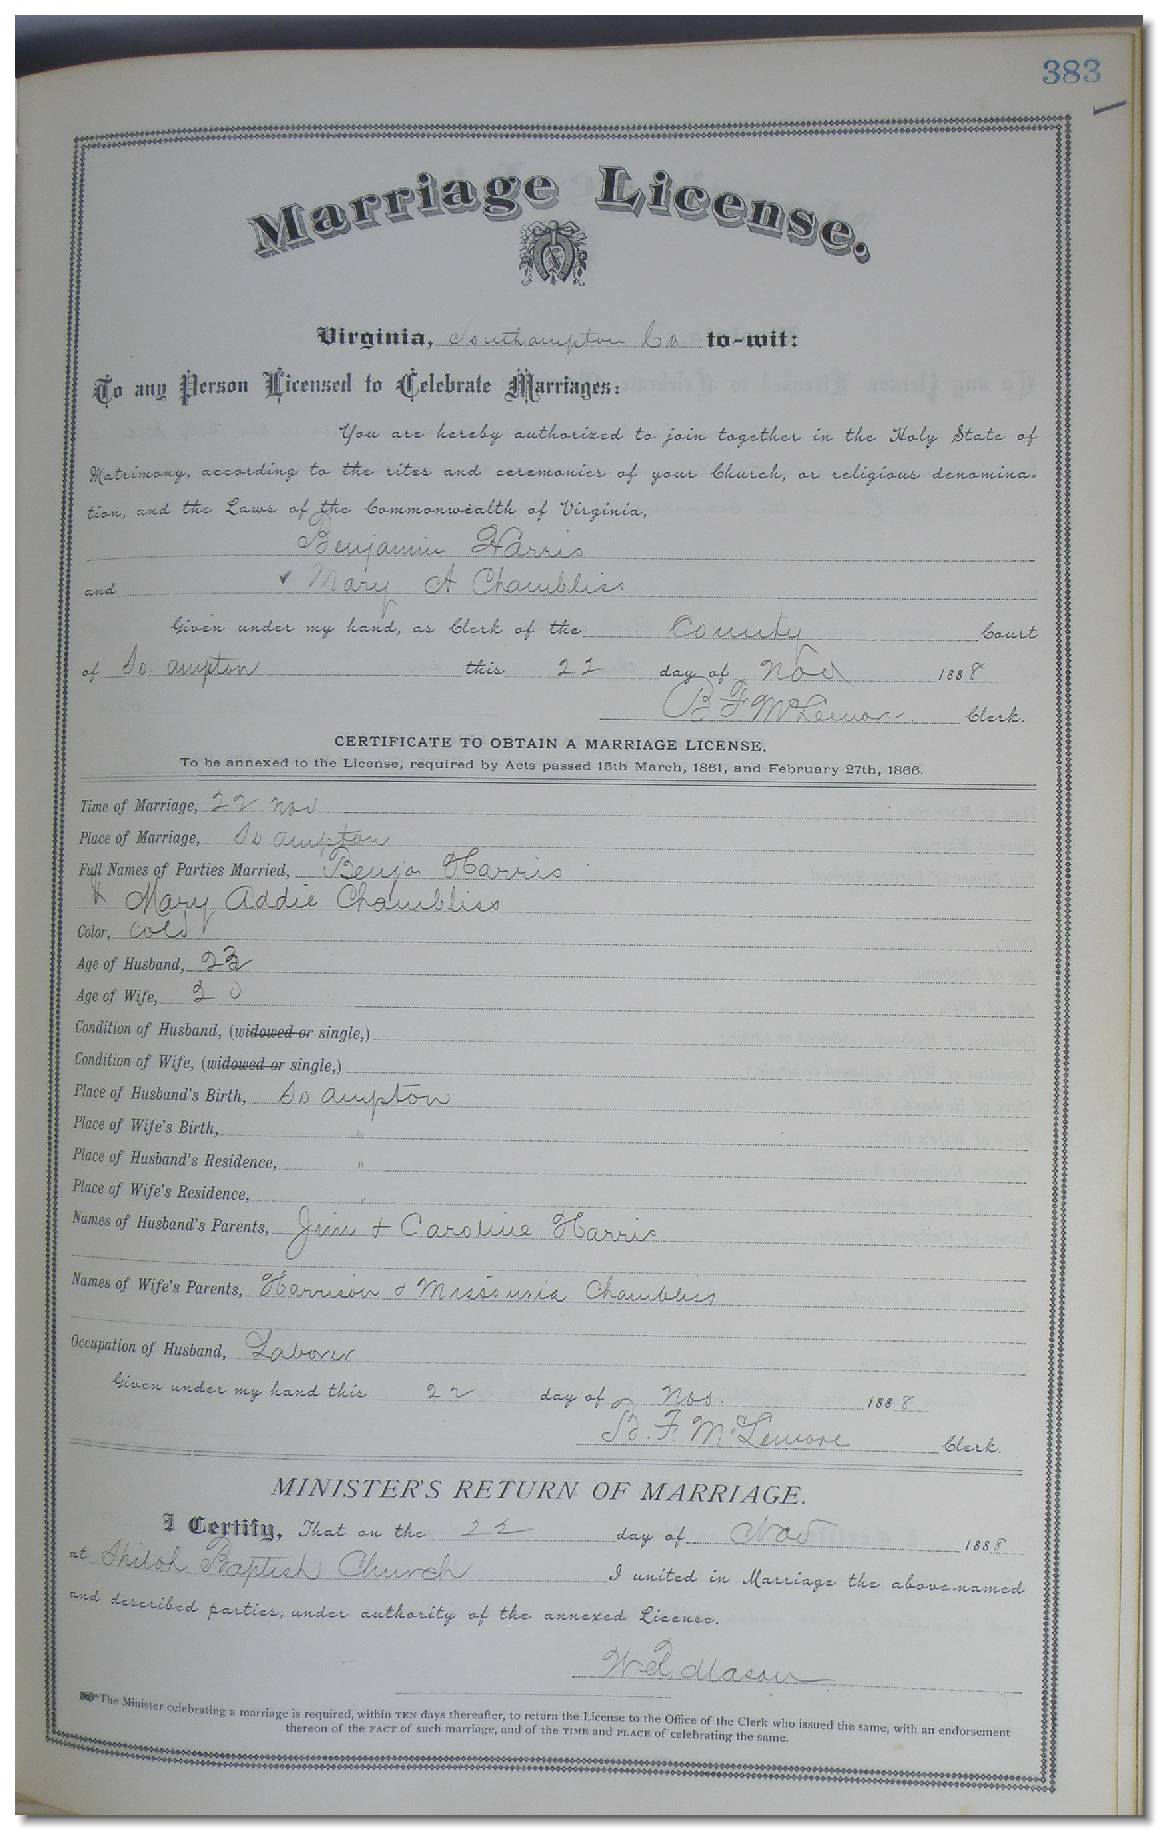 383
Marriage License.
Virginia, Southampton Co to-wit:
To any Person Licensed to Celebrate Marriages:
You are hereby authorized to join together in the Holy State of
Matrimony, according to the rites and ceremonies of your Church, or religious denomina-
tion, and the Laws of the Commonwealth of Virginia,
Benjamin Harris
and Mary A Chambliss
Given under my hand, as Clerk of the County Court
of So. ampton this 22 day of Nov 1888
B F McLemore Clerk.
CERTIFICATE TO OBTAIN A MARRIAGE LICENSE.
To be annexed to the License, required by Acts passed 15th March, 1861, and February 27th, 1866.
Time of Marriage, 22 Nov
Place of Marriage, So ampton
Full Names of Parties Married, Benja Harris
& Mary Addie Chambliss
Color, Cold
Age of Husband, 23
Age of Wife, 20
Condition of Husband, (widowed or single,)
Condition of Wife, (widowed or single,)
Place of Husband's Birth, So ampton
Place of Wife's Birth, "
Place of Husband's Residence, "
Place of Wife's Residence, "
Names of Husband's Parents, Jim + Caroline Harris
Names of Wife's Parents, Harrison & Missouria Chambliss
Occupation of Husband, Laborer
Given under my hand this 22 day of Nov. 1888
B. F. McLemore Clerk.
MINISTER'S RETURN OF MARRIAGE.
I Certify, That on the 22 day of Nov 1888
at Shiloh Baptist Church I united in Marriage the above-named
and described parties, under authority of the annexed License.
Mason
The Minister celebrating a marriage is required, within TEN days thereafter, to return the License to the Office of the Clerk who issued the same, with an endorsement
thereon of the FACT of such marriage, and of the TIME and PLACE of celebrating the same.